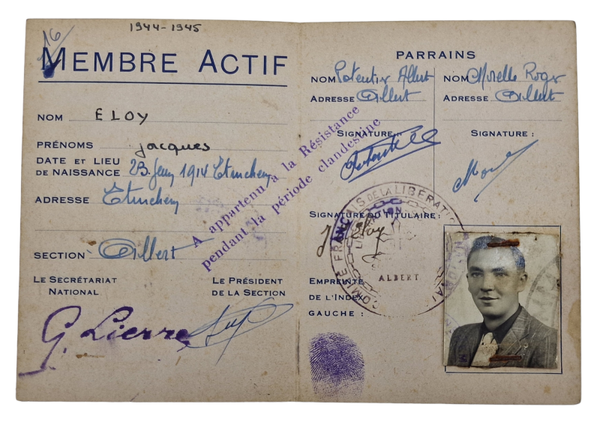 1944-1945
16
MEMBRE ACTIF
NOM ELOY
PRÉNOMS Jacques
DATE ET LIEU
DE NAISSANCE 23 1914 Etinehem
ADRESSE Etinehem
SECTION Albert
LE SECRÉTARIAT
NATIONAL
LE PRÉSIDENT
DE LA SECTION
G. Lierre
A appartenu à la Résistance
pendant la période clandestine
PARRAINS
NOM Potentier Albert
ADRESSE Albert
SIGNATURE
NOM Morelle Roger
ADRESSE Albert
SIGNATURE :
SIGNATURE DU TITULAIRE :
J. Eloy
FRANÇAIS DE LA LIBÉRATION
ALBERT
EMPREINTE
DE L'INDEX
GAUCHE :